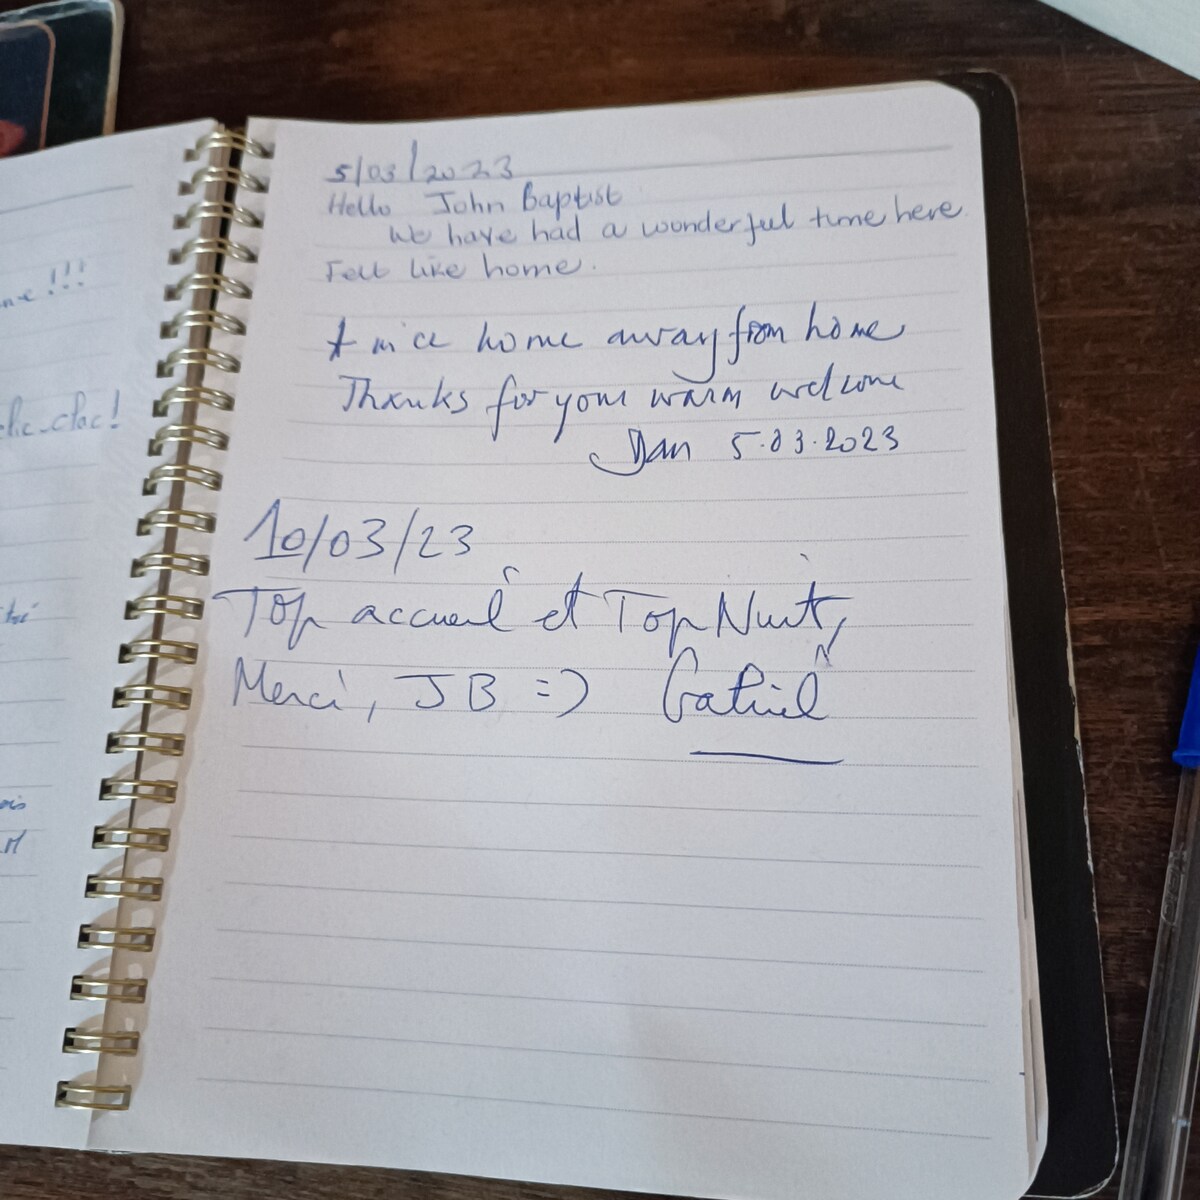 ne !!!
clic-clac!
ois
M
5/03/2023
Hello John Baptist
We have had a wonderful time here.
Felt like home.
A nice home away from home
Thanks for your warm welcome
Dan 5.03.2023
10/03/23
Top accueil et Top Nuit,
Merci, JB =) Gabriel